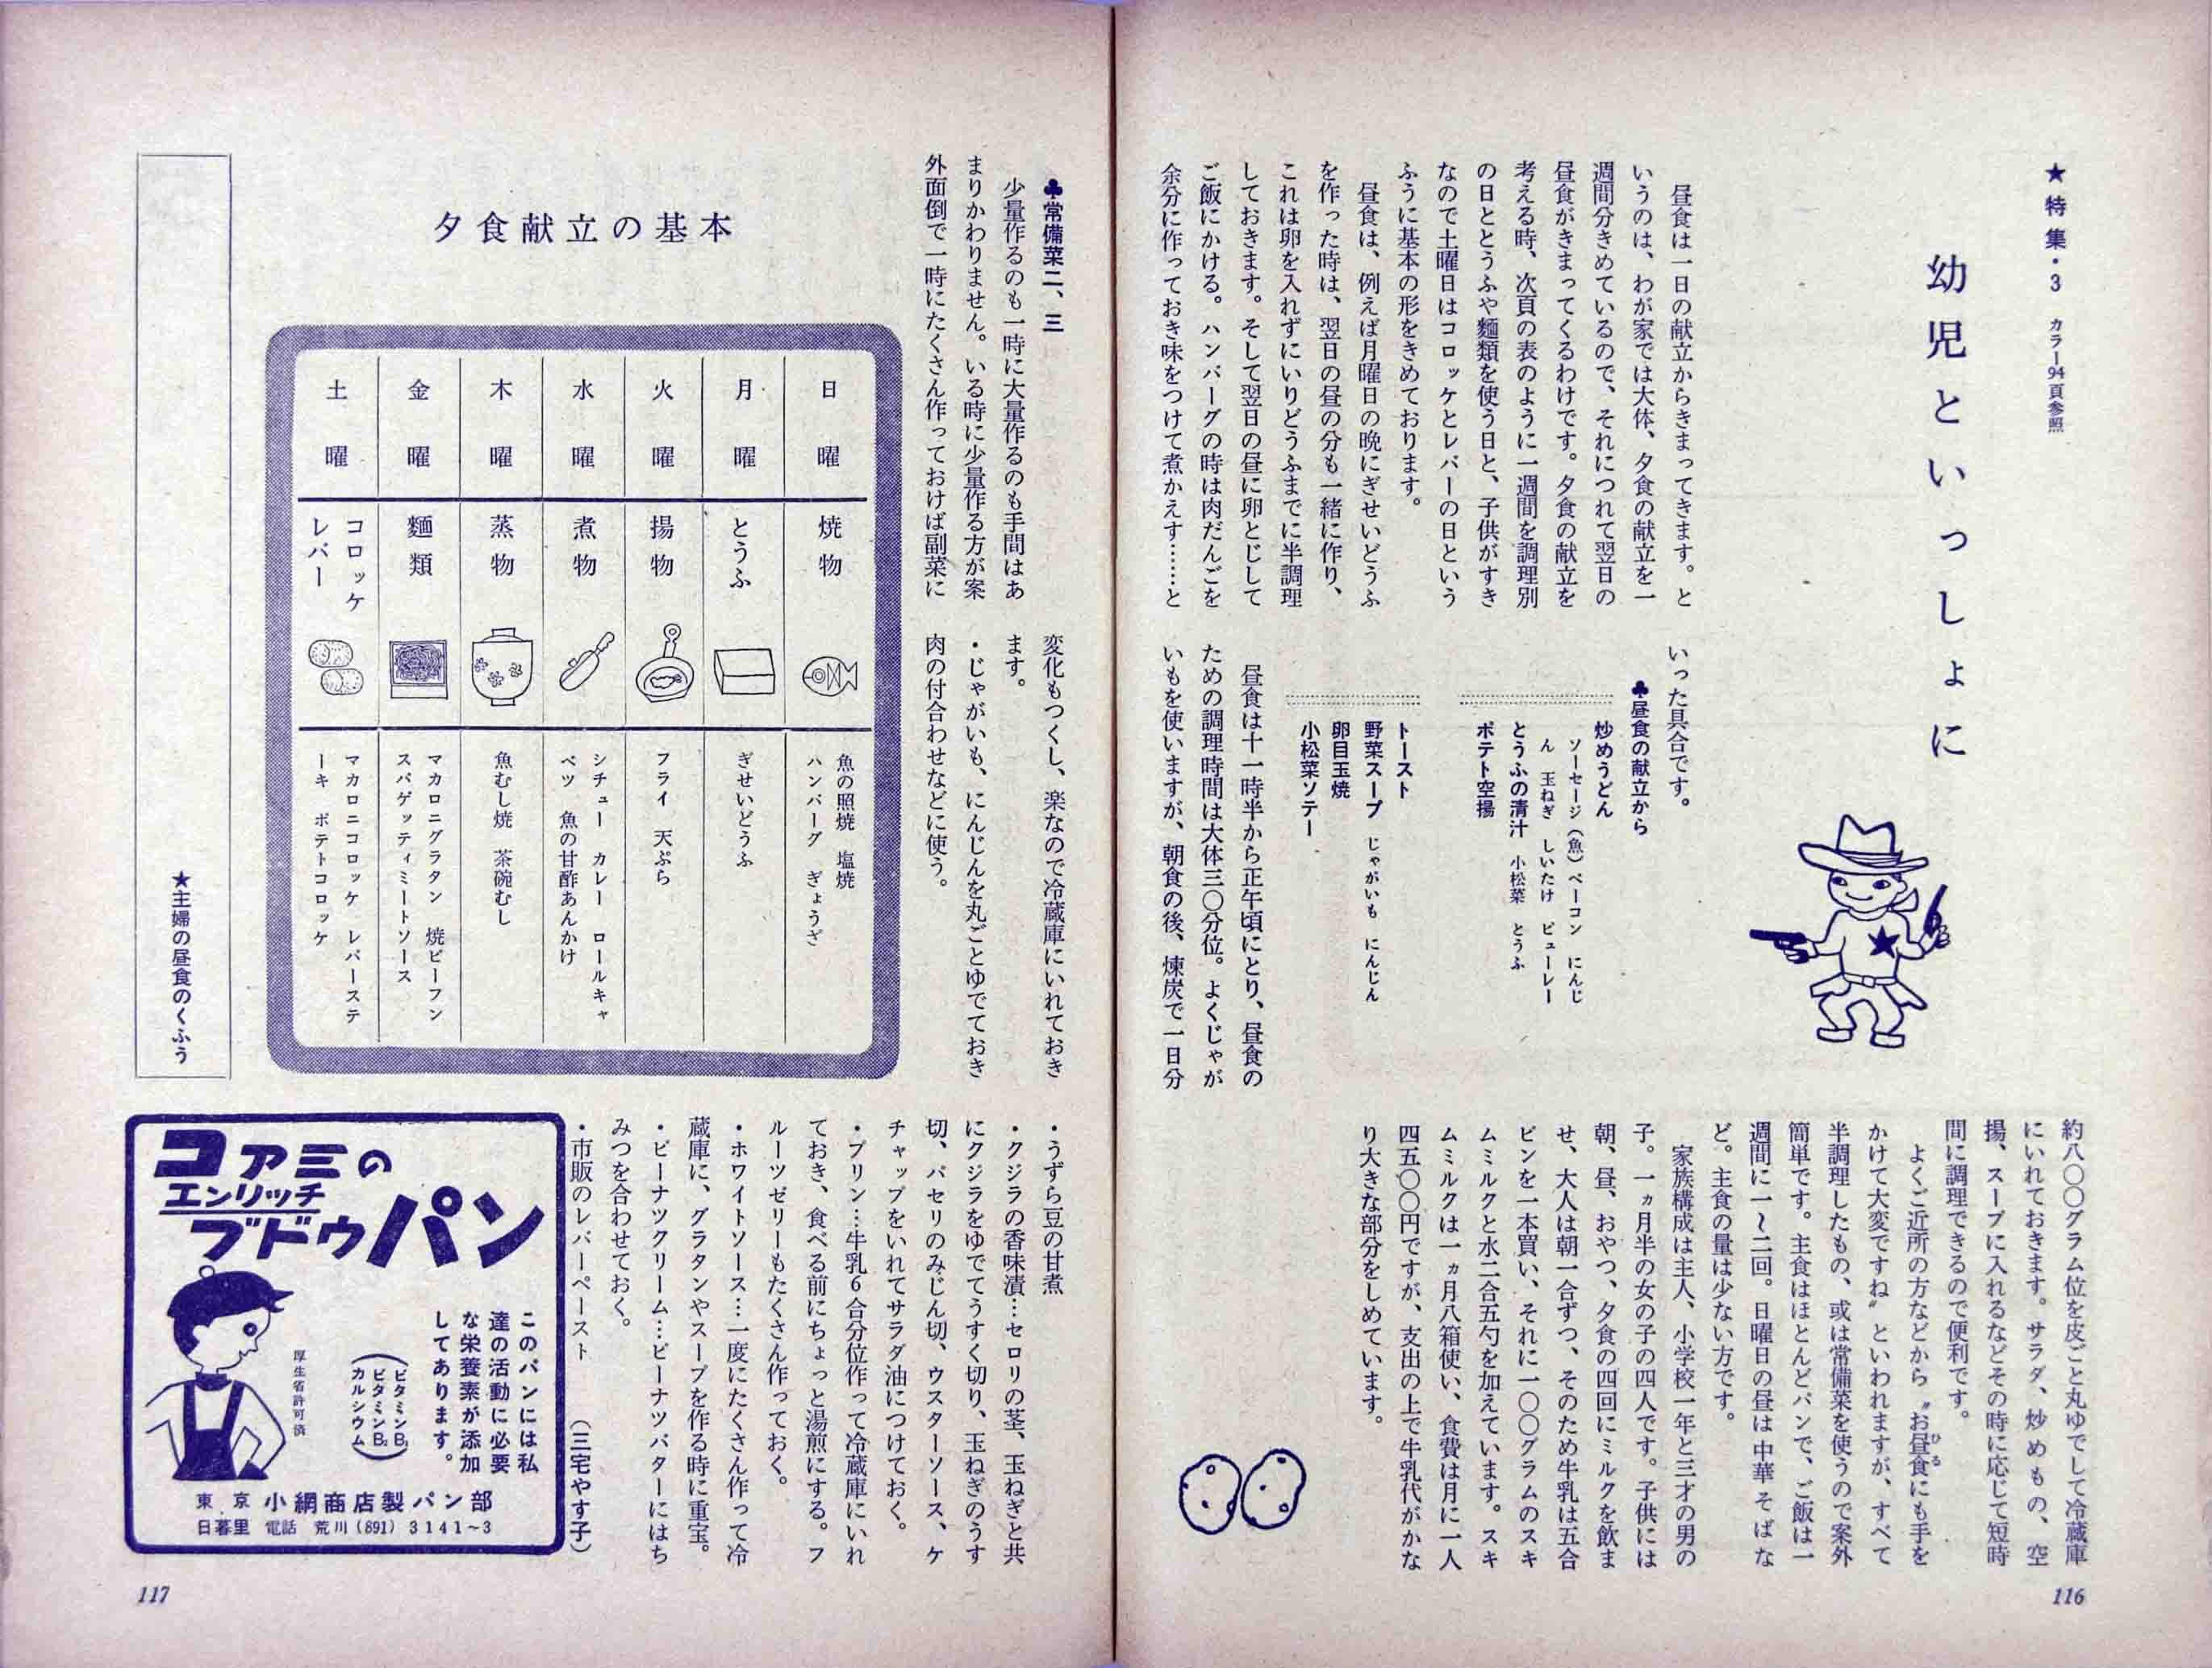 ★特集・3 カラー94頁参照
幼児といっしょに
昼食は一日の献立からきまってきます。と
いうのは、わが家では大体、夕食の献立を一
週間分きめているので、それにつれて翌日の
昼食がきまってくるわけです。夕食の献立を
考える時、次頁の表のように一週間を調理別
の日ととうふや麵類を使う日と、子供がすき
なので土曜日はコロッケとレバーの日という
ふうに基本の形をきめております。
昼食は、例えば月曜日の晩にぎせいどうふ
を作った時は、翌日の昼の分も一緒に作り、
これは卵を入れずにいりどうふまでに半調理
しておきます。そして翌日の昼に卵とじして
ご飯にかける。ハンバーグの時は肉だんごを
余分に作っておき味をつけて煮かえす……と
いった具合です。
♣昼食の献立から
炒めうどん
ソーセージ（魚）ベーコン にんじ
ん 玉ねぎ しいたけ ピューレー
とうふの清汁 小松菜 とうふ
ポテト空揚
トースト
野菜スープ じゃがいも にんじん
卵目玉焼
小松菜ソテー
昼食は十一時半から正午頃にとり、昼食の
ための調理時間は大体三〇分位。よくじゃが
いもを使いますが、朝食の後、煉炭で一日分
約八〇〇グラム位を皮ごと丸ゆでして冷蔵庫
にいれておきます。サラダ、炒めもの、空
揚、スープに入れるなどその時に応じて短時
間に調理できるので便利です。
よくご近所の方などから〝お昼食にも手を
ひる
かけて大変ですね〟といわれますが、すべて
半調理したもの、或は常備菜を使うので案外
簡単です。主食はほとんどパンで、ご飯は一
週間に一〜二回。日曜日の昼は中華そばな
ど。主食の量は少ない方です。
家族構成は主人、小学校一年と三才の男の
子。一ヵ月半の女の子の四人です。子供には
朝、昼、おやつ、夕食の四回にミルクを飲ま
せ、大人は朝一合ずつ、そのため牛乳は五合
ビンを一本買い、それに一〇〇グラムのスキ
ムミルクと水二合五勺を加えています。スキ
ムミルクは一ヵ月八箱使い、食費は月に一人
四五〇〇円ですが、支出の上で牛乳代がかな
り大きな部分をしめています。
116
♣常備菜二、三
少量作るのも一時に大量作るのも手間はあ
まりかわりません。いる時に少量作る方が案
外面倒で一時にたくさん作っておけば副菜に
変化もつくし、楽なので冷蔵庫にいれておき
ます。
・じゃがいも、にんじんを丸ごとゆでておき
肉の付合わせなどに使う。
夕食献立の基本
日曜 焼物 魚の照焼 塩焼
ハンバーグ ぎょうざ
月曜 とうふ ぎせいどうふ
火曜 揚物 フライ 天ぷら
水曜 煮物 シチュー カレー ロールキャ
ベツ 魚の甘酢あんかけ
木曜 蒸物 魚むし焼 茶碗むし
金曜 麵類 マカロニグラタン 焼ビーフン
スパゲッティミートソース
土曜 コロッケ
レバー
マカロニコロッケ レバーステ
ーキ ポテトコロッケ
★主婦の昼食のくふう
・うずら豆の甘煮
・クジラの香味漬…セロリの茎、玉ねぎと共
にクジラをゆでてうすく切り、玉ねぎのうす
切、パセリのみじん切、ウスターソース、ケ
チャップをいれてサラダ油につけておく。
・プリン…牛乳6合分位作って冷蔵庫にいれ
ておき、食べる前にちょっと湯煎にする。フ
ルーツゼリーもたくさん作っておく。
・ホワイトソース…一度にたくさん作って冷
蔵庫に、グラタンやスープを作る時に重宝。
・ピーナツクリーム…ピーナツバターにはち
みつを合わせておく。
・市販のレバーペースト （三宅やす子）
コアミの
エンリッチ
ブドウパン
このパンには私
達の活動に必要
な栄養素が添加
してあります。
（ビタミンB₁
ビタミンB₂
カルシウム）
厚生省許可済
東京 小網商店製パン部
日暮里 電話 荒川（891）3141〜3
117